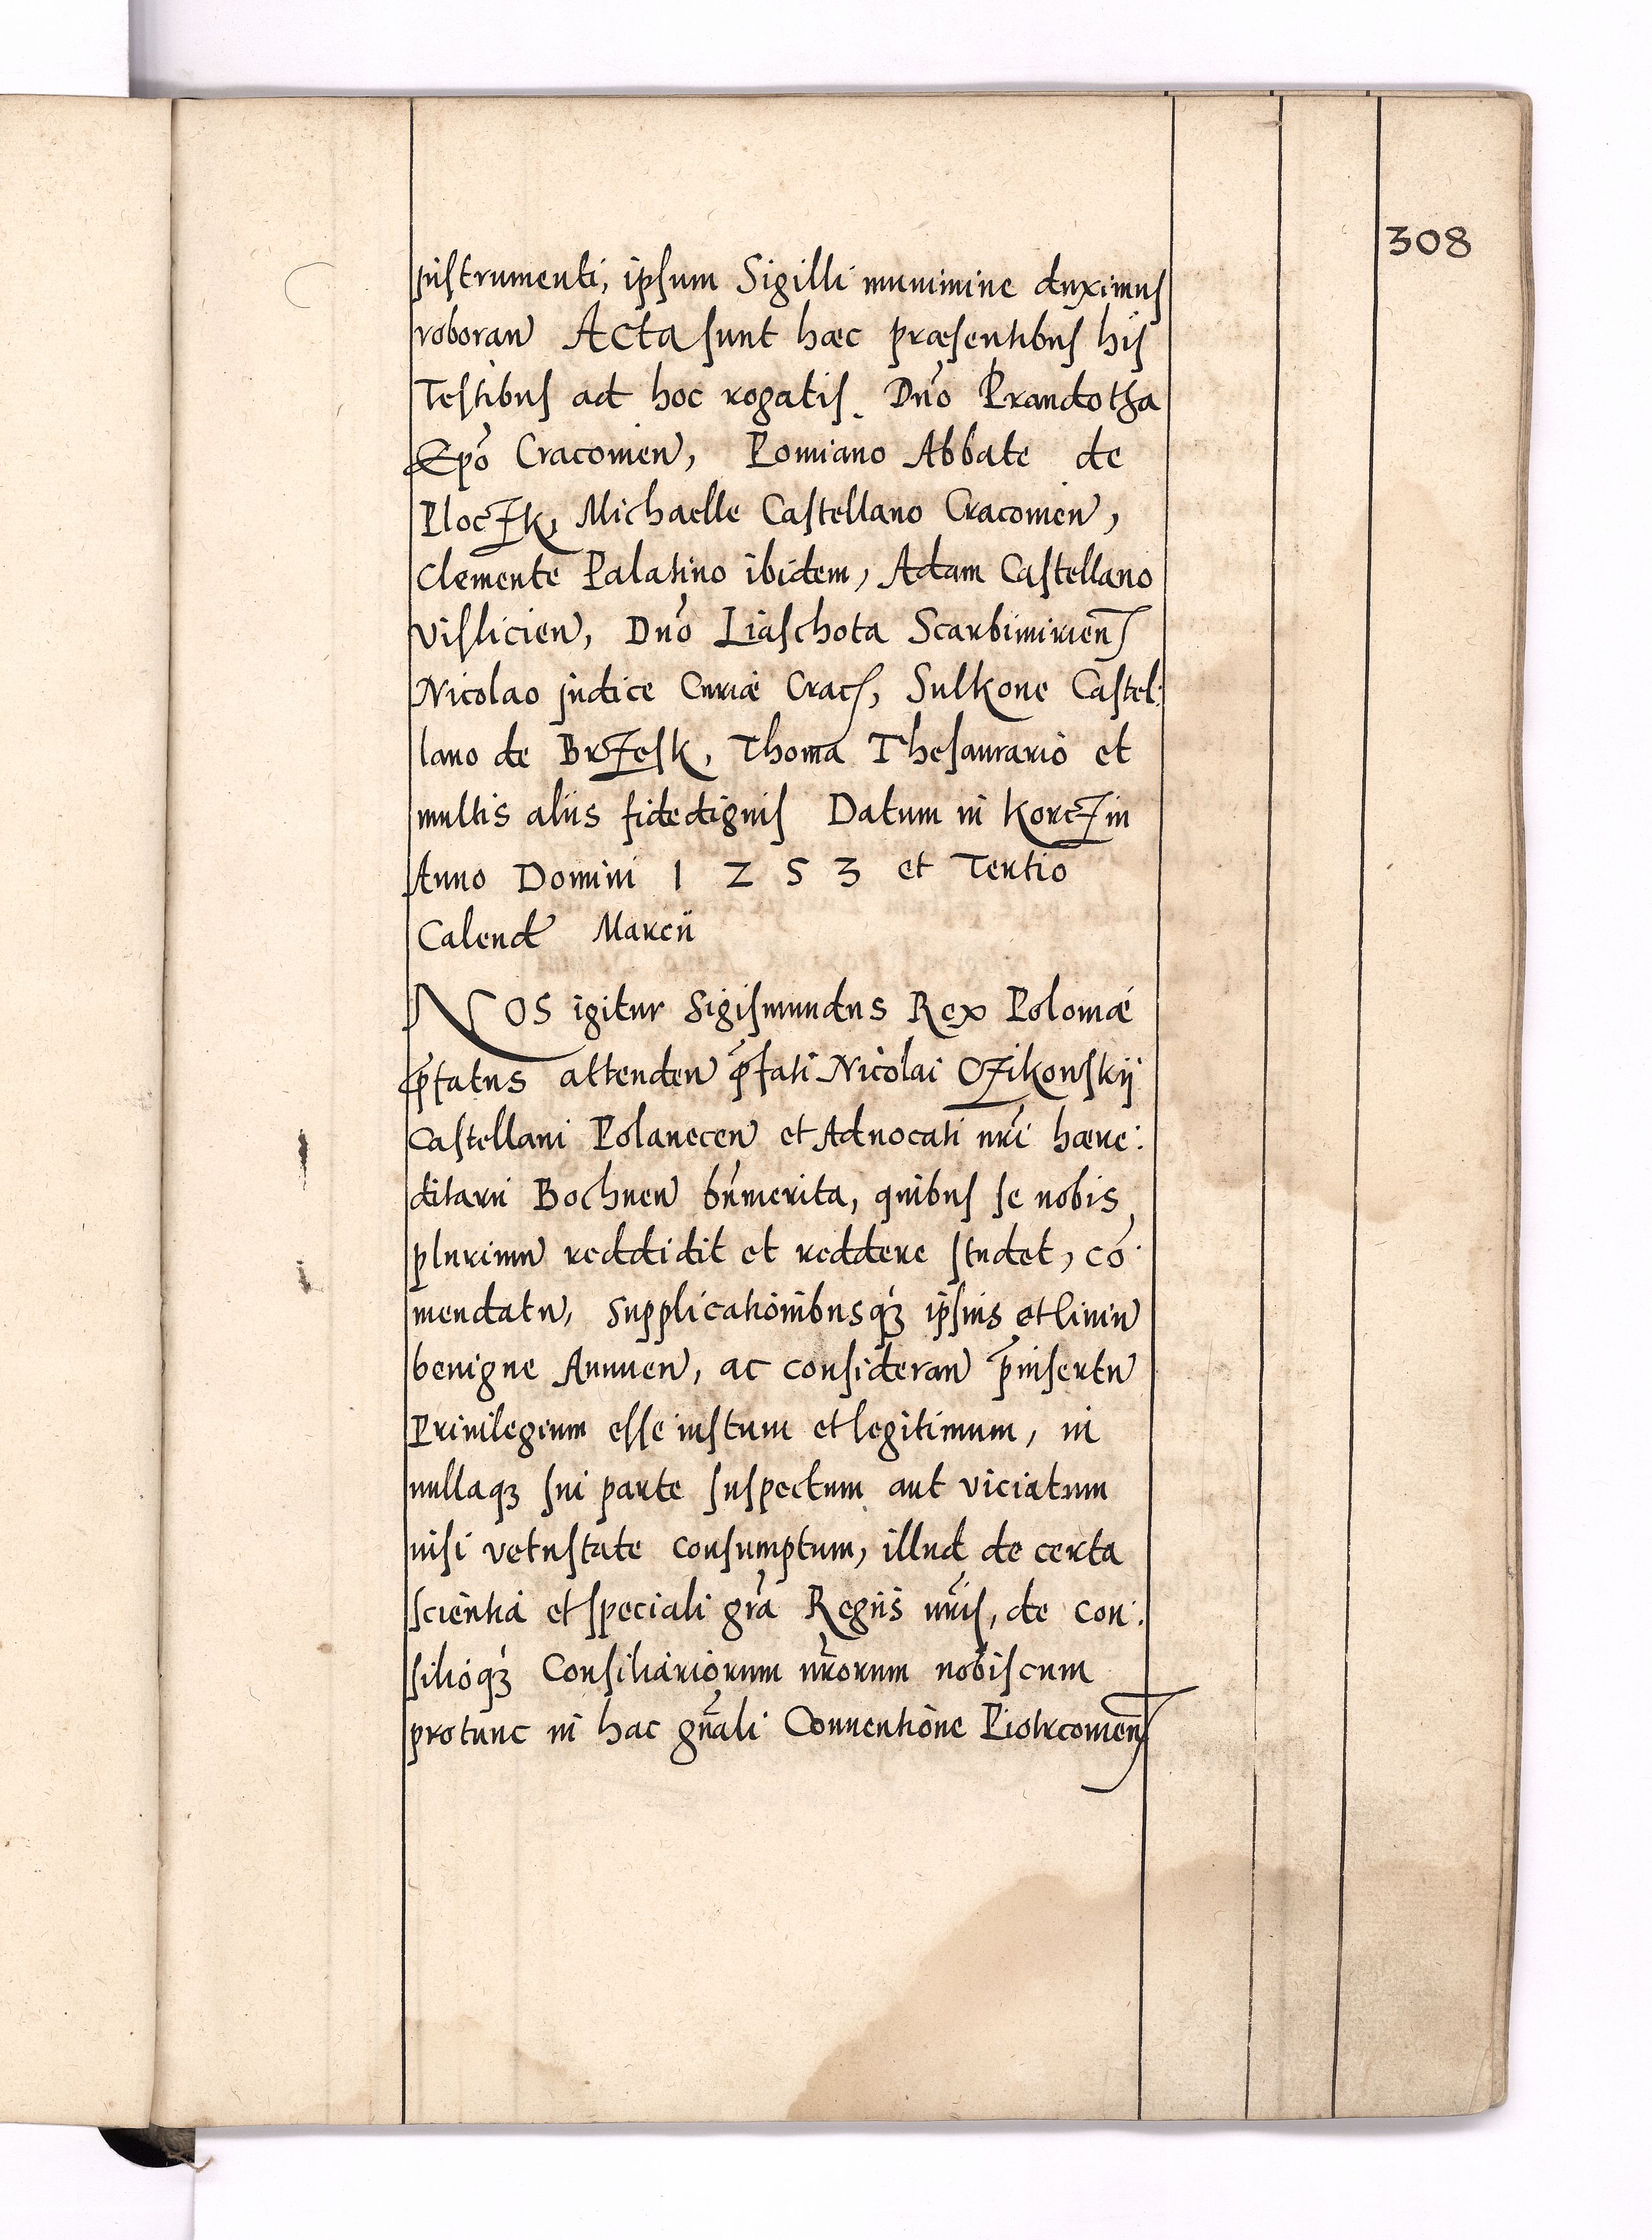 308
instrumenti, ipsum Sigilli munimine duximus
roboran Acta sunt haec praesentibus hijs
Testibus ad hoc rogatis. Dno Prandotha
Epo Cracouien, Pomiano Abbate de
Ploczk, Michaelle Castellano Cracouien,
Clemente Palatino ibidem, Adam Castellano
Vislicien, Dno Liaschota Scarbimirien
Nicolao judice Curiae Cracs, Sulkone Castel:
lano de Brzesk, Thoma Thesaurario et
multis aliis fidedignis Datum in Korczin
Anno Domini 1 2 5 3 et Tertio
Calend Marcii
Nos igitur Sigismundus Rex Poloniae
pfatus attenden pfati Nicolai Ozikowskij
Castellani Polanecen et Aduocati nri haere:
ditarii Bochnen bnmerita, quibus se nobis
plurimu reddidit et reddere studet, co:
mendatu, Supplicationibusq3 ipsius et linin
benigne Annuen, ac consideran pinsertu
Priuilegium esse iustum et legitimum, in
nullaq3 sui parte suspectum aut viciatum
nisi vetustate consumptum, illud de certa
scientia et speciali gra Regiis nris, de con:
silioq3 Consiliariorum nrorum nobiscum
protunc in hac gnali Conuentione Piotrcouien